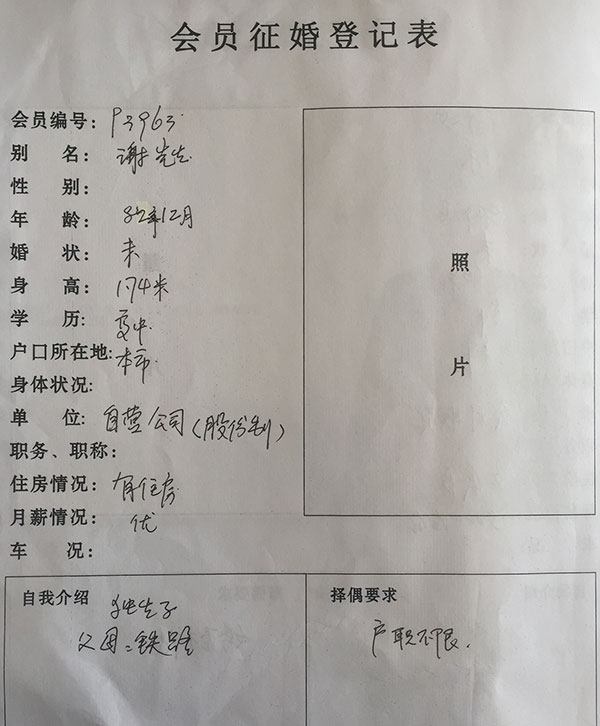 会员征婚登记表
会员编号: P3963
别 名: 谢先生
性 别:
年 龄: 82年12月
婚 状: 未
身 高: 174米
学 历: 高中
户口所在地: 本市
身体状况:
单 位: 自营公司(股份制)
职务、职称:
住房情况: 有住房
月薪情况: 优
车 况:
照
片
自我介绍
独生子
父母:铁路
择偶要求
户职不限.